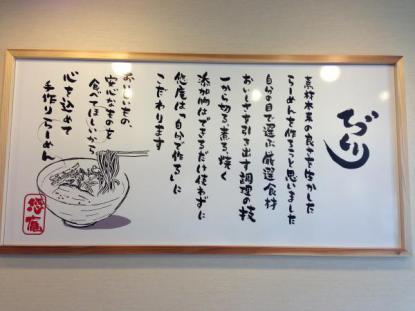 てづくり
素材本来の良さを生かした
らーめんを作ろうと思いました
自分の目で選ぶ厳選食材
おいしさを引き出す調理の技
一から切る、煮る、焼く
添加物はできるだけ使わずに
悠庵は「自分で作る」に
こだわります
おいしいもの、
安心なものを
食べてほしいから
心を込めて
手作りらーめん
悠庵